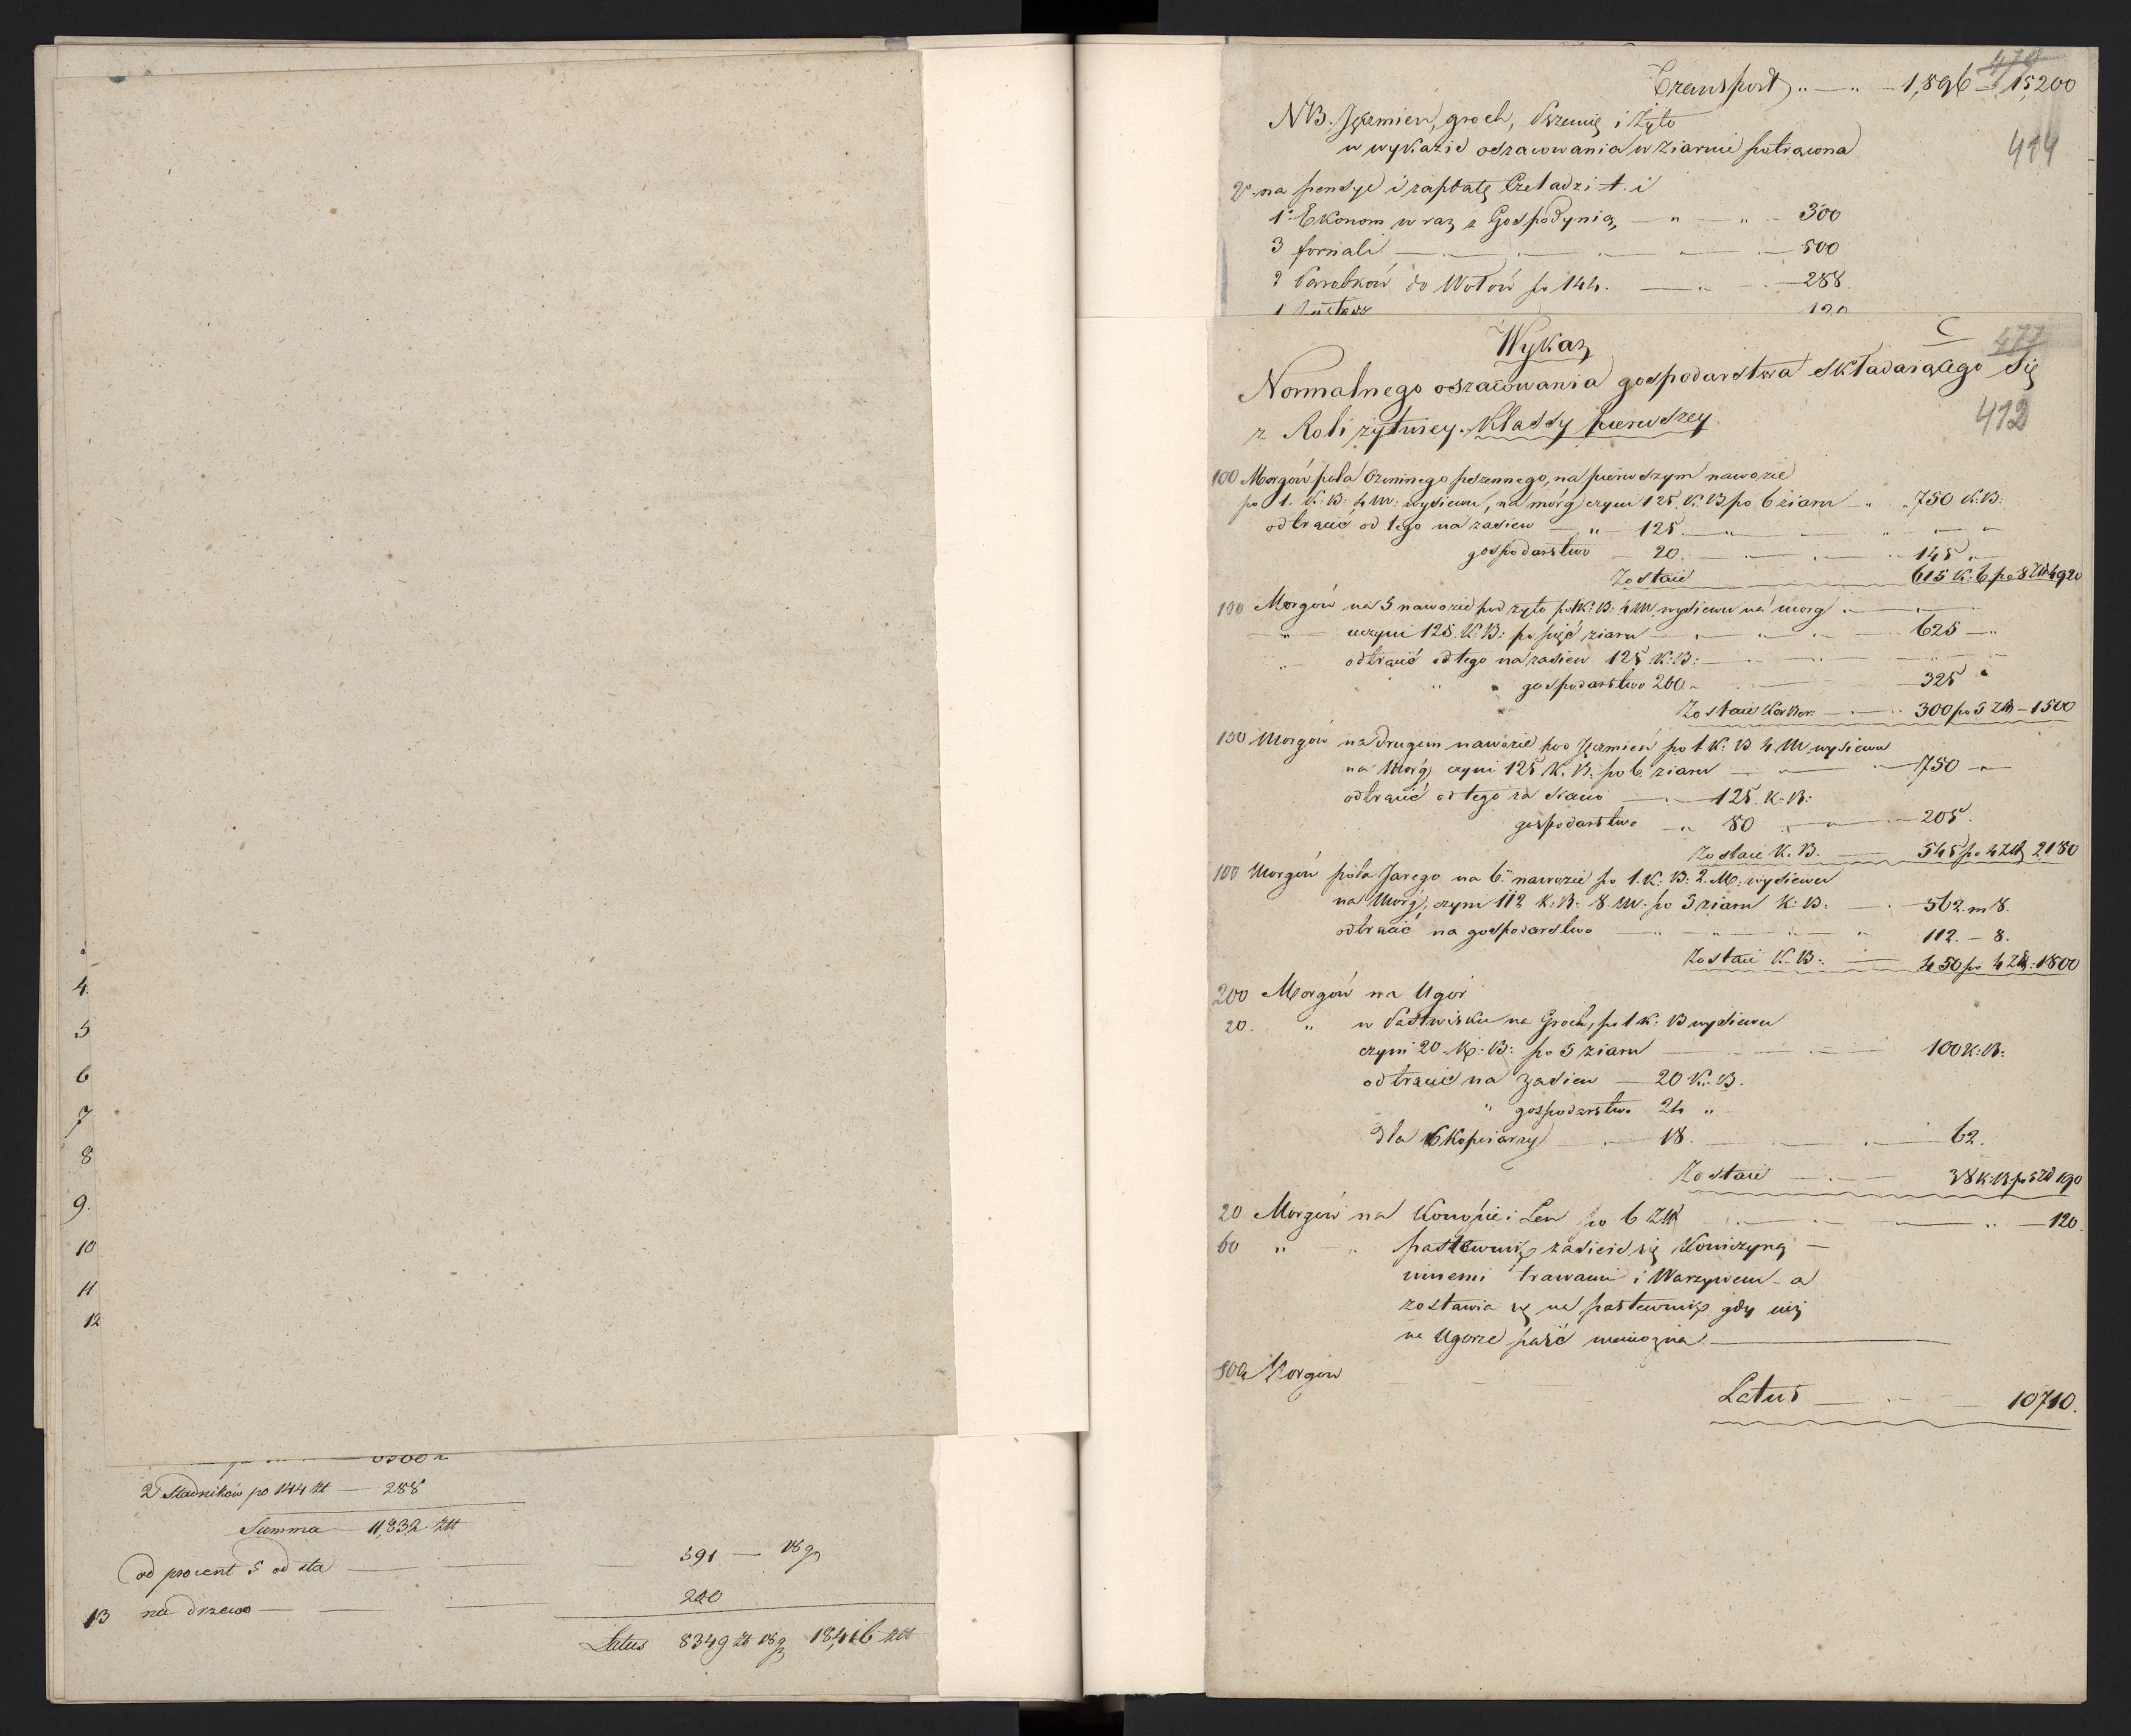 4.
5
6
7
8
9.
10
11
12
2 Stadników po 144 zł — 288
Summa — 11,832 złł
od procent 5 od sta — — — 591 — 18 g
13 na drzewo — — — 220
Latus 8349 zł 18 g 18,416 złł
478
Transport „ — „ — 1,896 — 15,200
NB. Jęczmien, groch, i Żyto
w wykazie oszacowania w ziarnie potrącona
414
2° na pensye i zapłatę Czeladzi t. i
1. Ekonom wraz z Gospodynią — „ — „ — 300
3 fornali — 500
2 Parobków do Wołów po 144. — „ — 288.
1 120
C
477
Wykaz
Normalnego oszacowania gospodarstwa składaiącego się
z Roli żytniey. Klassy pierwszey.
412
100 Morgów pola Oziminego pszennego, na pierwszym nawozie
po 1. K: B: 4 M: wysiewu, na mórg czyni 125. K. B po 6 ziarn — „ 750 K: B:
odtrącić od tego na zasiew — „ — 125. — „
gospodarstwo — 20. — „ — 145 „
Zostaie — 615 K: B po 8 Złł 4920
100 Morgów na 5 nawozie pod żyto po 1 K: B: 4 M wysiewu na morg
— „ — uczyni 125. K: B: po pięć ziarn — „ — 625 — „
„ — odtrącić od tego na zasiew 125 K: B: —
„ „ gospodarstwo 200 „ — 325 „
Zostaie Korker. — „ 300 po 5 Złł — 1500
100 Morgów na drugim nawozie pod Jęczmień po 1 K: B 4 M. wysiewu
na Mórg, czyni 125 K. B: po 6. ziarn — „ — 750 — „
odtrącić od tego za — 125. K: B:
gospodarstwo — „ 80 „ — 205.
Zostaie K. B. — 545 po 4 Złł 2180
100 Morgów pola Jarego na 6. nawozie po 1. K: B: 2. M: wysiewu
na Morg, czyni 112 K: B: 8. M: po 5 ziarn K: B: — 562. m 8.
odtrącić na gospodarstwo — „ — „ 112. — 8.
Zostaie K. B: — 450 po 4 Złł: 1800
200 Morgów na Ugor
20. „ w Pastwisku na Groch, po 1 K: B wysiewu
czyni 20 K: B: po 5 ziarn — 100 K: B:
odtrącić na zasiew — 20 K: B.
„ gospodarstwo 24 „
dla 6 Kopiarzy — 18. — 62.
Zostaie — 38 K: B po 5 Zł 190
20 Morgów na Konopie i Len po 6 Złł — 120.
60 „ — „ zasieie się Koniczyną —
innemi trawami i Warzywem — a
zostawia się na gdy niż
na Ugorze paść niemożna —
500 Morgów
Latus — 10710.